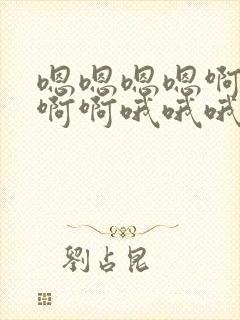 嗯嗯嗯嗯啊
啊啊哦哦哦
劉占昆